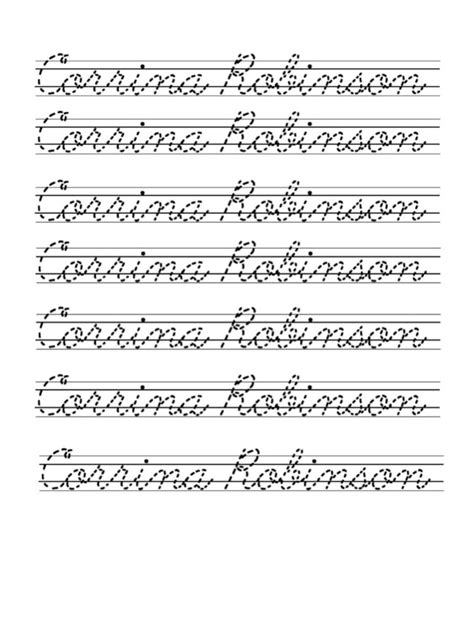 Corrina Robinson
Corrina Robinson
Corrina Robinson
Corrina Robinson
Corrina Robinson
Corrina Robinson
Corrina Robinson